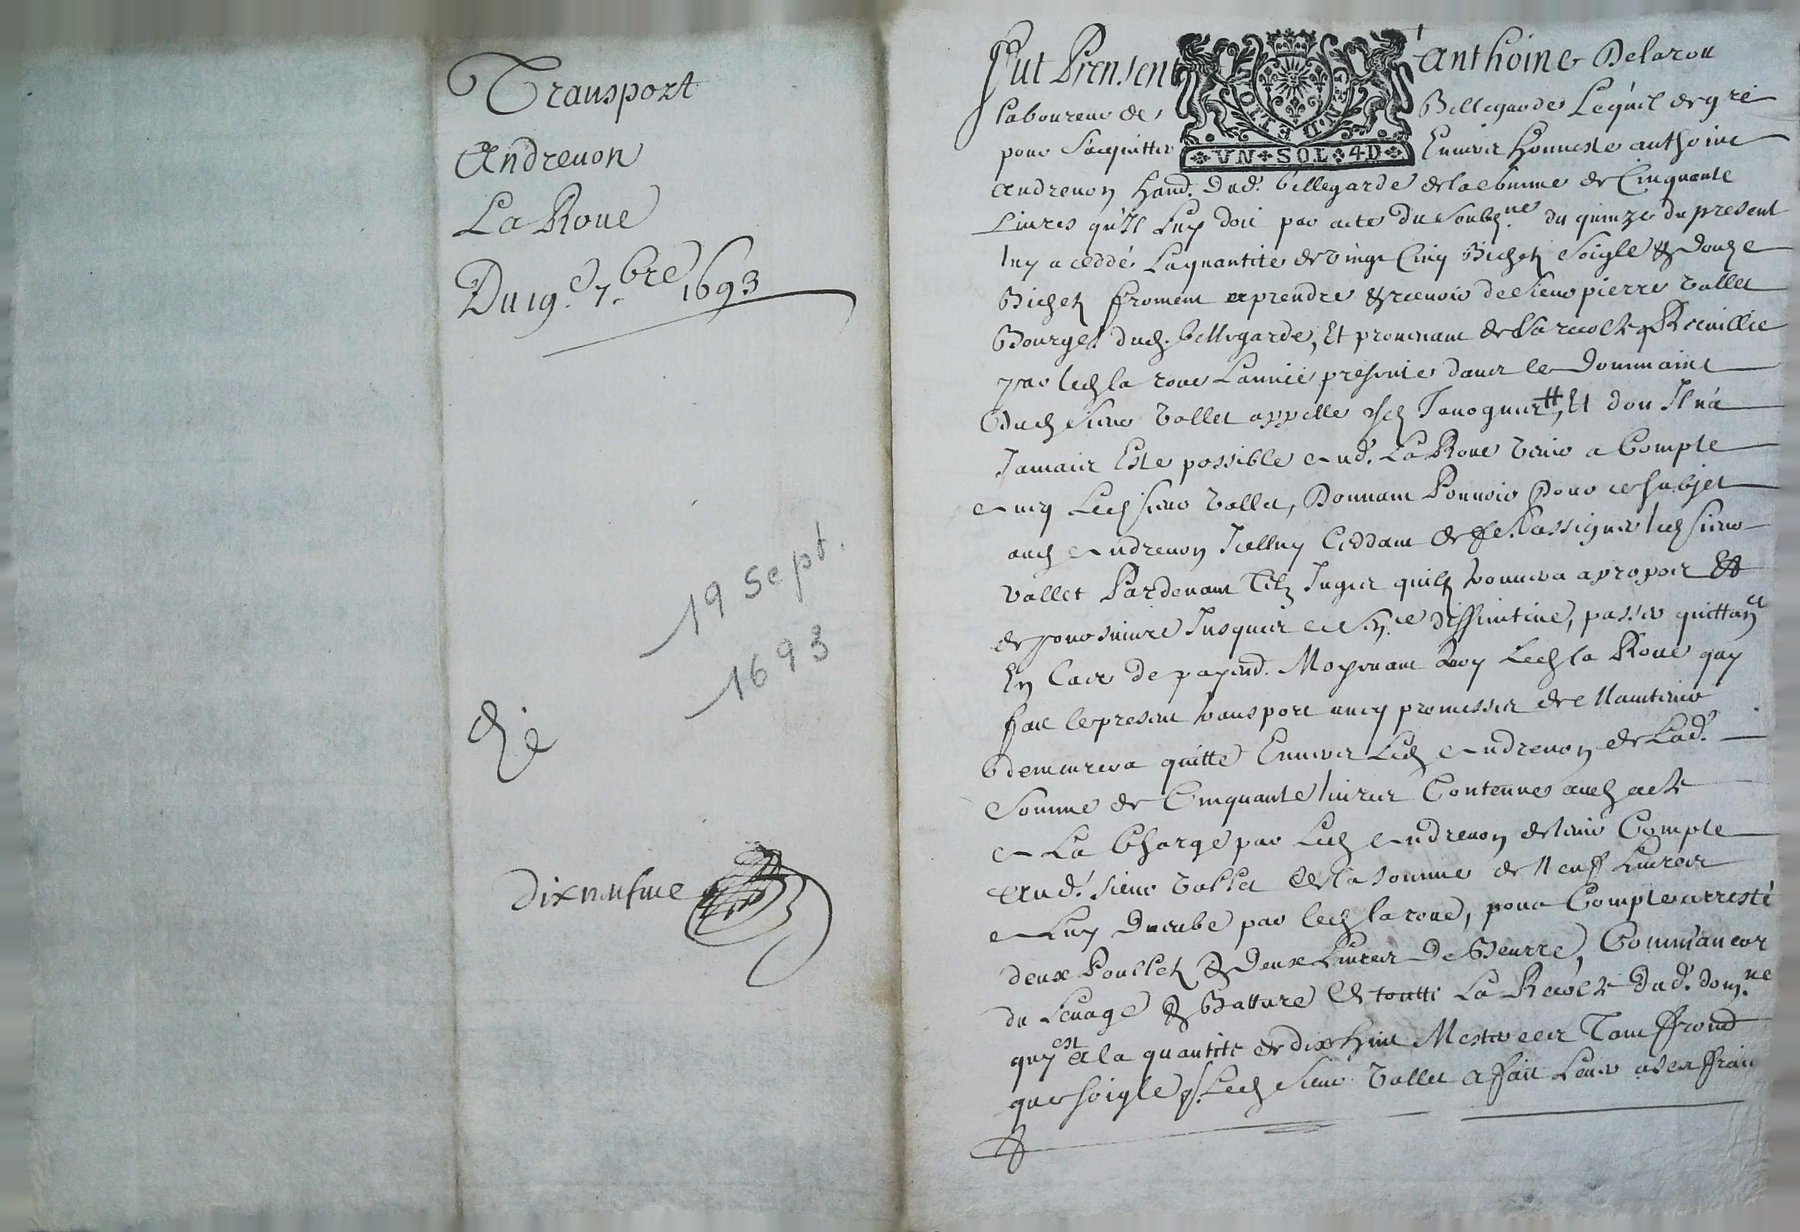 Transport
Andreuon
La Roue
Du 19e 7.bre 1693
19 sept.
1693
dixneufme
Fut Present Anthoine Delarou
laboureur de Bellegarde Lequel de gré
pour sacquitter Enuers Honneste anthoine
Andreuon Hand. dud. bellegarde de la somme de Cinquante
Liures qu'Il Luy doit par acte du soubs.ne du quinze du present
luy a ceddé La quantité de vingt Cinq Bichetz soigle & douze
Bichetz ffroment a prendre & receuoir de sieur pierre vallet
Bourge. dud. bellegarde, Et prouenant de la recolte Recuillie
par led la roue L'année presente dans le Dommaine
Dud sieur vallet appellé Et dou Il n'a
Jamais Esté possible aud. La Roue venir a Compte
auec Led sieur vallet, Donnant Pouuoir pour ce subjet
aud Andreuon Icelluy Ceddant de ff. assigner led sieur
vallet Pardeuant telz Juges quil trouuera a propos &
de poursuiure Jusques a diffinitiue, passer quittance
En Cas de payemt. Moyenant quoy Led la Roue quy
fait le present transport auec promesses de Maintenir
demeurera quitte Enuers Led Andreuon de Lad.
Somme de Cinquante liures Contenue aud acte
A La Charge par Led Andreuon de tenir Compte
Aud. sieur vallet de la somme de Neuff Liures
a Luy par led la roue, pour Compte arresté
deux Poulletz & deux Liures De Beurre, Comm'ancor
du Leuage & Batture de toutte La Recolte Dud. dom.ne
quy est a la quantité de dix huit Mestures Tant ffromt
que soigle q. Led sieur vallet A fait Leuer a ses ffrais
VN SOL 4D